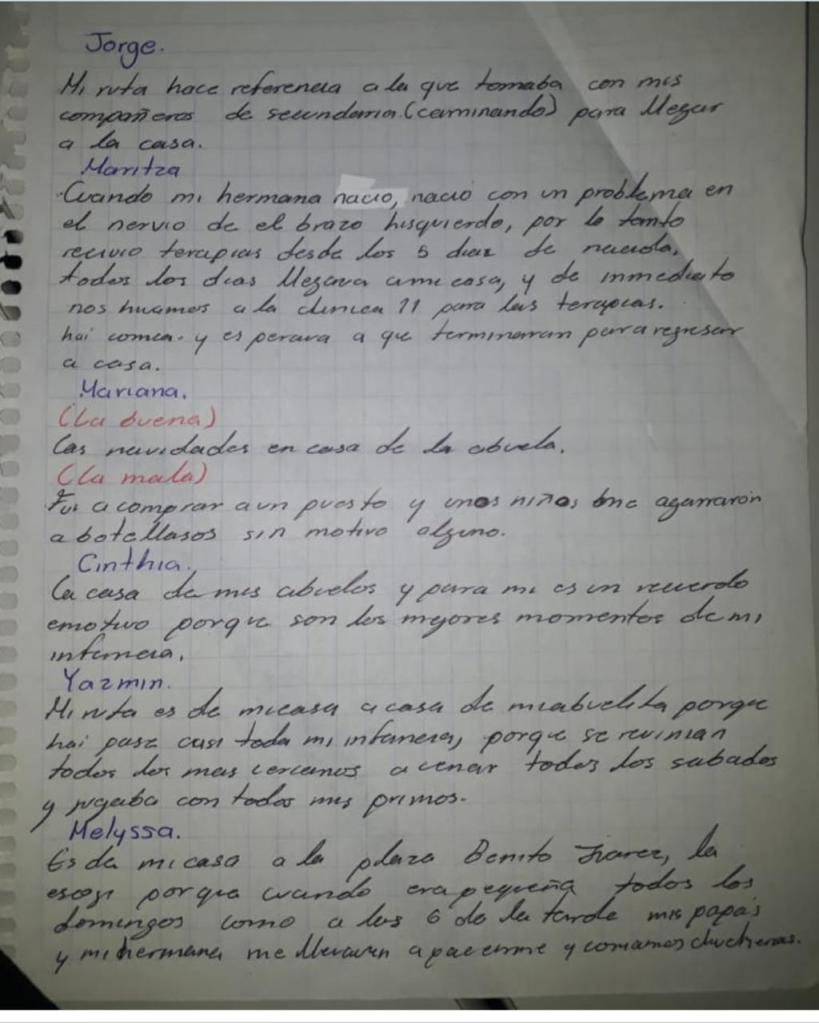 Jorge.
Mi ruta hace referencia a la que tomaba con mis
compañeros de secundaria (caminando) para llegar
a la casa.
Maritza
Cuando mi hermana nacio, nacio con un problema en
el nervio de el brazo hisquierdo, por lo tanto
recivio terapias desde los 5 dias de nacida.
todos los dias llegava ami casa, y de inmediato
nos huamos a la clinica 11 para las terapias.
hai comia y es perava a que terminaran para regresar
a casa.
Mariana.
(La buena)
Las navidades en casa de la abuela.
(La mala)
Fui a comprar aun puesto y unos niños me agarraron
a botellasos sin motivo alguno.
Cinthia.
La casa de mis abuelos y para mi es un recuerdo
emotivo porque son los mejores momentos de mi
infancia.
Yazmin.
Mi ruta es de micasa a casa de miabuelita porque
hai pase casi toda mi infancia, porque se reunian
todos los mas cercanos a cenar todos los sabados
y jugaba con todos mis primos.
Melyssa.
Es de mi casa a la plaza Benito Juarez, la
escogi porque cuando era pequeña todos los
domingos como a las 6 de la tarde mis papás
y mi hermana me llevavan a pacearme y comiamos chucherias.